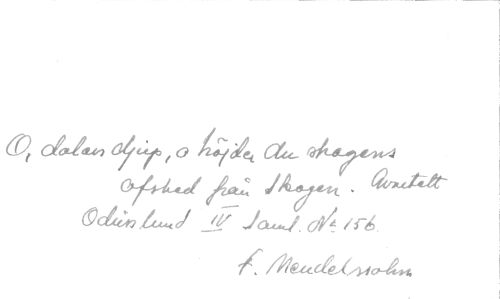 O, dalars djup, o höjder du skogens
afsked från skogen.
Odinslund IV Saml. No 156.
F. Mendelssohn